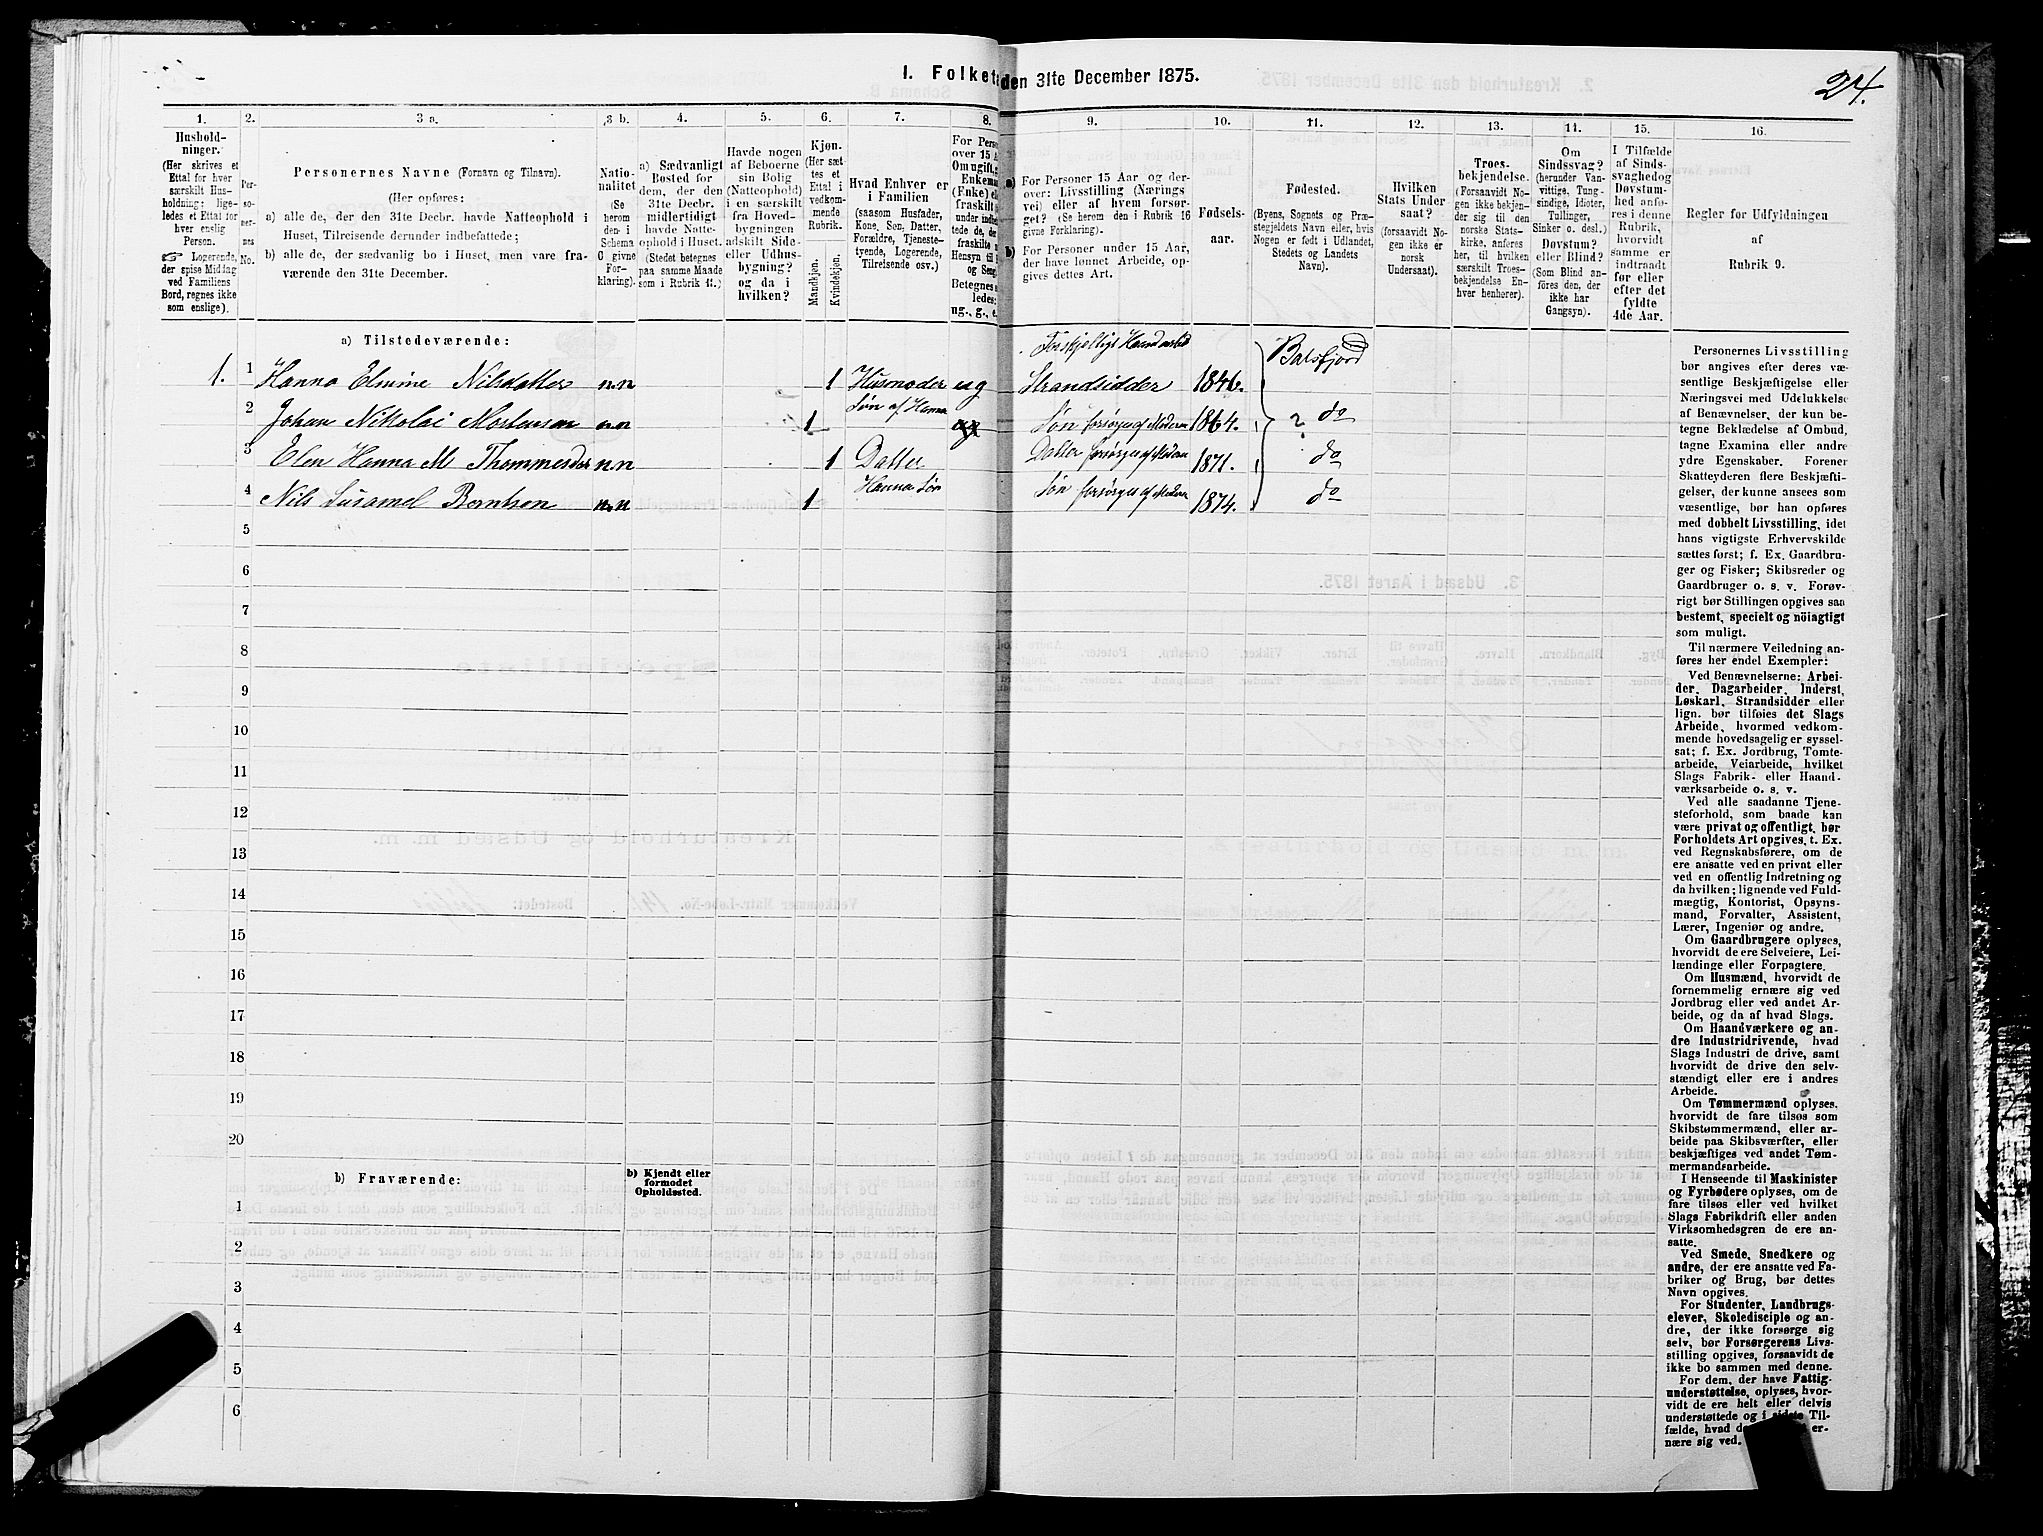 1. Folket den 31te December 1875.
24.
1.
Hushold-
ninger.
(Her skrives et
Ettal for hver
særskilt Hus-
holdning; lige-
ledes et Ettal for
hver enslig
Person.
Logerende,
der spise Middag
ved Familiens
Bord, regnes ikke
som enslige).
2.
Per-
soner-
nes
No.
3 a.
Personernes Navne (Fornavn og Tilnavn).
(Her opføres:
a) alle de, der den 31te Decbr. havde Natteophold i
Huset, Tilreisende derunder indbefattede;
b) alle de, der sædvanlig bo i Huset, men vare fra-
værende den 31te December.
3 b.
Natio-
nalitet
(Se
herom
den i
Schema
C givne
For-
klaring).
4.
a) Sædvanligt
Bosted for
dem, der den
31te Decbr.
midlertidigt
havde Natte-
ophold i Huset.
(Stedet betegnes
paa samme Maade
som i Rubrik 11.)
5.
Havde nogen
af Beboerne
sin Bolig
(Natteophold)
i en særskilt
fra Hoved-
bygningen
adskilt Side-
eller Udhus-
bygning?
og da i
hvilken?
6.
Kjøn.
(Her sæt-
tes et
Ettal i
vedkom-
mende
Rubrik.
Mandkjøn.
Kvindekjøn.
7.
Hvad Enhver er
i Familien
(saasom Husfader,
Kone, Søn, Datter,
Forældre, Tjeneste-
tyende, Logerende,
Tilreisende osv.)
8.
For Perso
over 15 A
Om ugift, g
Enkema
(Fnke) el
fraskilt
under indbe
tede de, de
fraskilte
Hensyn til
og Seng
Betegnes s
ledes:
ug., g., e.
9.
a) For Personer 15 Aar og der-
over: Livsstilling (Nærings
vei) eller af hvem forsør-
get? (Se herom den i Rubrik 16
givne Forklaring).
b) For Personer under 15 Aar,
der have lønnet Arbeide, op-
gives dettes Art.
10.
Fødsels-
aar.
11.
Fødested.
(Byens, Sognets og Præ-
stegjeldets Navn eller, hvis
Nogen er født i Udlandet,
Stedets og Landets
Navn).
12.
Hvilken
Stats Under
saat?
(forsaavidt No-
gen ikke er
norsk
Undersaat).
13.
Troes-
bekjendelse.
(Forsaavidt No-
gen ikke bekjen-
der sig til den
norske Stats-
kirke, anføres
her, til hvilken
særskilt Troes-
bekjendelse En-
hver henhører).
14.
Om
Sindssvag?
(herunder Van-
vittige, Tung-
sindige, Idioter,
Tullinger,
Sinker o. desl.)
Døvstum?
eller Blind?
(Som Blind an-
föres den, der
ikke har
Gangsyn).
15.
I Tilfælde
af Sinds-
svaghed og
Døvstum-
hed anfø-
res i denne
Rubrik,
hvorvidt
samme er
indtraadt
før eller
efter det
fyldte
4de Aar.
16.
Regler for Udfyldningen
af
Rubrik 9.
a) Tilstedeværende:
1. 1 Hanna Elmine Nilsdatter n.n 1 Husmoder ug Forskjelligt Haandarbeid Strandsidder 1846. Balsfjord
2 Johan Nikolai Mortensen n.n 1 Søn af Hanna Søn forsørges af Moderen 1864. ? do
3 Elen Hanna M Thommesdr n.n 1 Datter Datter forsørges af Moderen 1871. do
4 Nils Berntsen n.n 1 Hanna Søn Søn forsørges af Moderen 1874. do
5
6
7
8
9
10
11
12
13
14
15
16
17
18
19
20
b) Fraværende:
b) Kjendt eller
formodet
Opholdssted.
1
2
3
4
5
6
Personernes Livsstilling
bør angives efter deres væ-
sentlige Beskjæftigelse eller
Næringsvei med Udelukkelse
af Benævnelser, der kun be-
tegne Beklædelse af Ombud,
tagne Examina eller andre
ydre Egenskaber. Forener
Skatteyderen flere Beskjæfti-
gelser, der kunne ansees som
væsentlige, bør han opføres
med dobbelt Livsstilling, idet
hans vigtigste Erhvervskilde
sættes først; f. Ex. Gaardbru-
ger og Fisker; Skibsreder og
Gaardbruger o. s. v. Forøv-
rigt bør Stillingen opgives saa
bestemt, specielt og nöiagtigt
som muligt.
Til nærmere Veiledning an-
føres her endel Exempler:
Ved Benævnelserne: Arbei-
der, Dagarbeider, Inderst,
Løskarl, Strandsidder eller
lign. bør tilføies det Slags
Arbeide, hvormed vedkom-
mende hovedsagelig er syssel-
sat; f. Ex. Jordbrug, Tomte-
arbeide, Veiarbeide, hvilket
Slags Fabrik- eller Haand-
værksarbeide o. s. v.
Ved alle saadanne Tjene-
steforhold, som baade kan
være privat og offentligt, bør
Forholdets Art opgives, t. Ex.
ved Regnskabsførere, om de
ere ansatte ved en privat eller
ved en offentlig Indretning og
da hvilken; lignende ved Fuld-
mægtig, Kontorist, Opsyns-
mand, Forvalter, Assistent,
Lærer, Ingeniør og andre.
Om Gaardbrugere oplyses,
hvorvidt de ere Selveiere, Lei-
lændinge eller Forpagtere.
Om Husmænd, hvorvidt de
fornemmelig ernære sig ved
Jordbrug eller ved andet Ar-
beide, og da af hvad Slags.
Om Haandværkere og an-
dre Industridrivende, hvad
Slags Industri de drive, samt
hvorvidt de drive den selv-
stændigt eller ere i andres
Arbeide.
Om Tømmermænd oplyses,
hvorvidt de fare tilsøs som
Skibstømmermænd, eller ar-
beide paa Skibsværfter, eller
beskjæftiges ved andet Tøm-
mermandsarbeide.
I Henseende til Maskinister
og Fyrbødere oplyses, om de
fare tilsøs eller ved hvilket
Slags Fabrikdrift eller anden
Virksomhedsgren de ere an-
satte.
Ved Smede, Snedkere og
andre, der ere ansatte ved Fa-
briker og Brug, bør dettes
Navn opgives.
For Studenter, Landbrugs-
elever, Skoledisciple og an-
dre, der ikke forsørge sig
selv, bør Forsørgerens Livs-
stilling opgives, forsaavidt de
ikke bo sammen med denne.
For dem, der have Fattig-
understøttelse, oplyses, hvor-
vidt de ere helt eller delvis
understøttede og i sidste Til-
fælde, hvad de er-
nære sig ved.